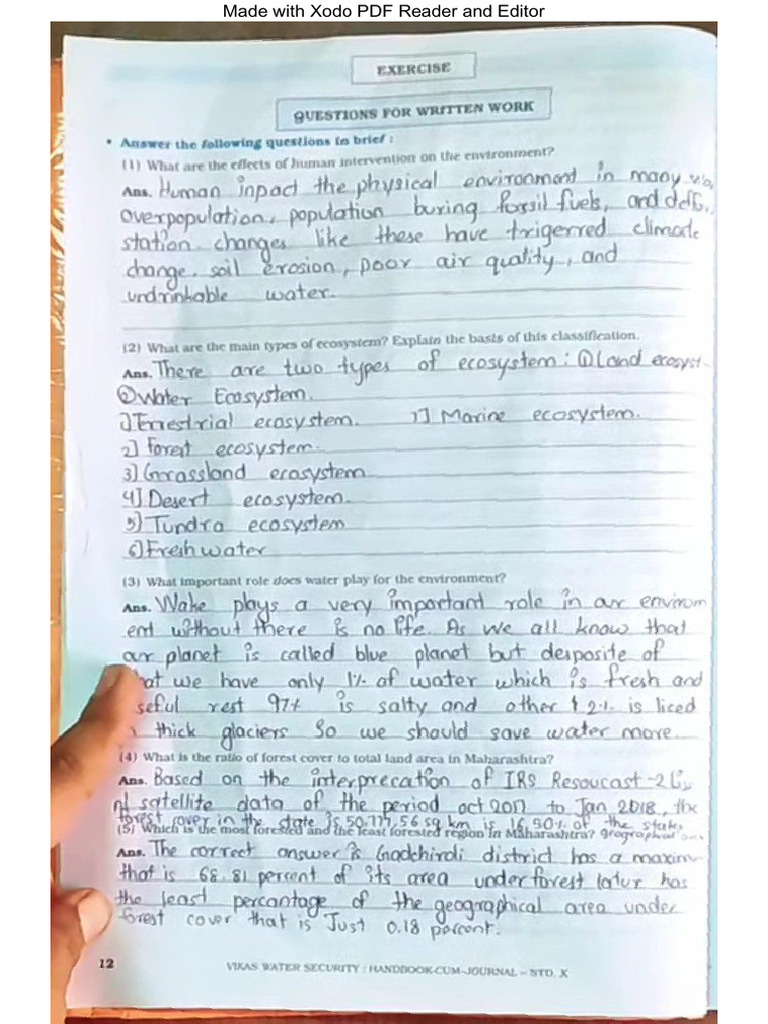 Made with Xodo PDF Reader and Editor
EXERCISE
QUESTIONS FOR WRITTEN WORK
• Answer the following questions in brief :
(1) What are the effects of human intervention on the environment?
Ans. Human inpact the physical environment in many
overpopulation, population buring forssil fuels, and deffo
station. changes like these have trigerred climate
change. soil erosion, poor air quality, and
undrinkable water.
(2) What are the main types of ecosystem? Explain the basis of this classification.
Ans. There are two types of ecosystem : ① Land ecosyst
② Water Ecosystem.
1) Terrestrial ecosystem. 1) Marine ecosystem.
2) Forest ecosystem.
3) Grassland ecosystem
4) Desert ecosystem.
5) Tundra ecosystem
6) Fresh water
(3) What important role does water play for the environment?
Ans. Wake plays a very important role in our environm
ent without there is no life. As we all know that
our planet is called blue planet but desposite of
hat we have only 1% of water which is fresh and
seful rest 97% is salty and other 2% is liced
thick glaciers So we should save water more.
(4) What is the ratio of forest cover to total land area in Maharashtra?
Ans. Based on the interprecation of IRS Resoucast-2
satellite data of the period oct 2017 to Jan 2018, the
forest cover in the state is 50,777,56 sq km is 16.50% of the states
geographical
(5) Which is the most forested and the least forested region in Maharashtra?
Ans. The correct answer is Gadchiroli district has a maxim
that is 68.81 percent of its area under forest latur has
the least percantage of the geographical area under
forest cover that is Just 0.18 percent.
12
VIKAS WATER SECURITY : HANDBOOK-CUM-JOURNAL – STD. X